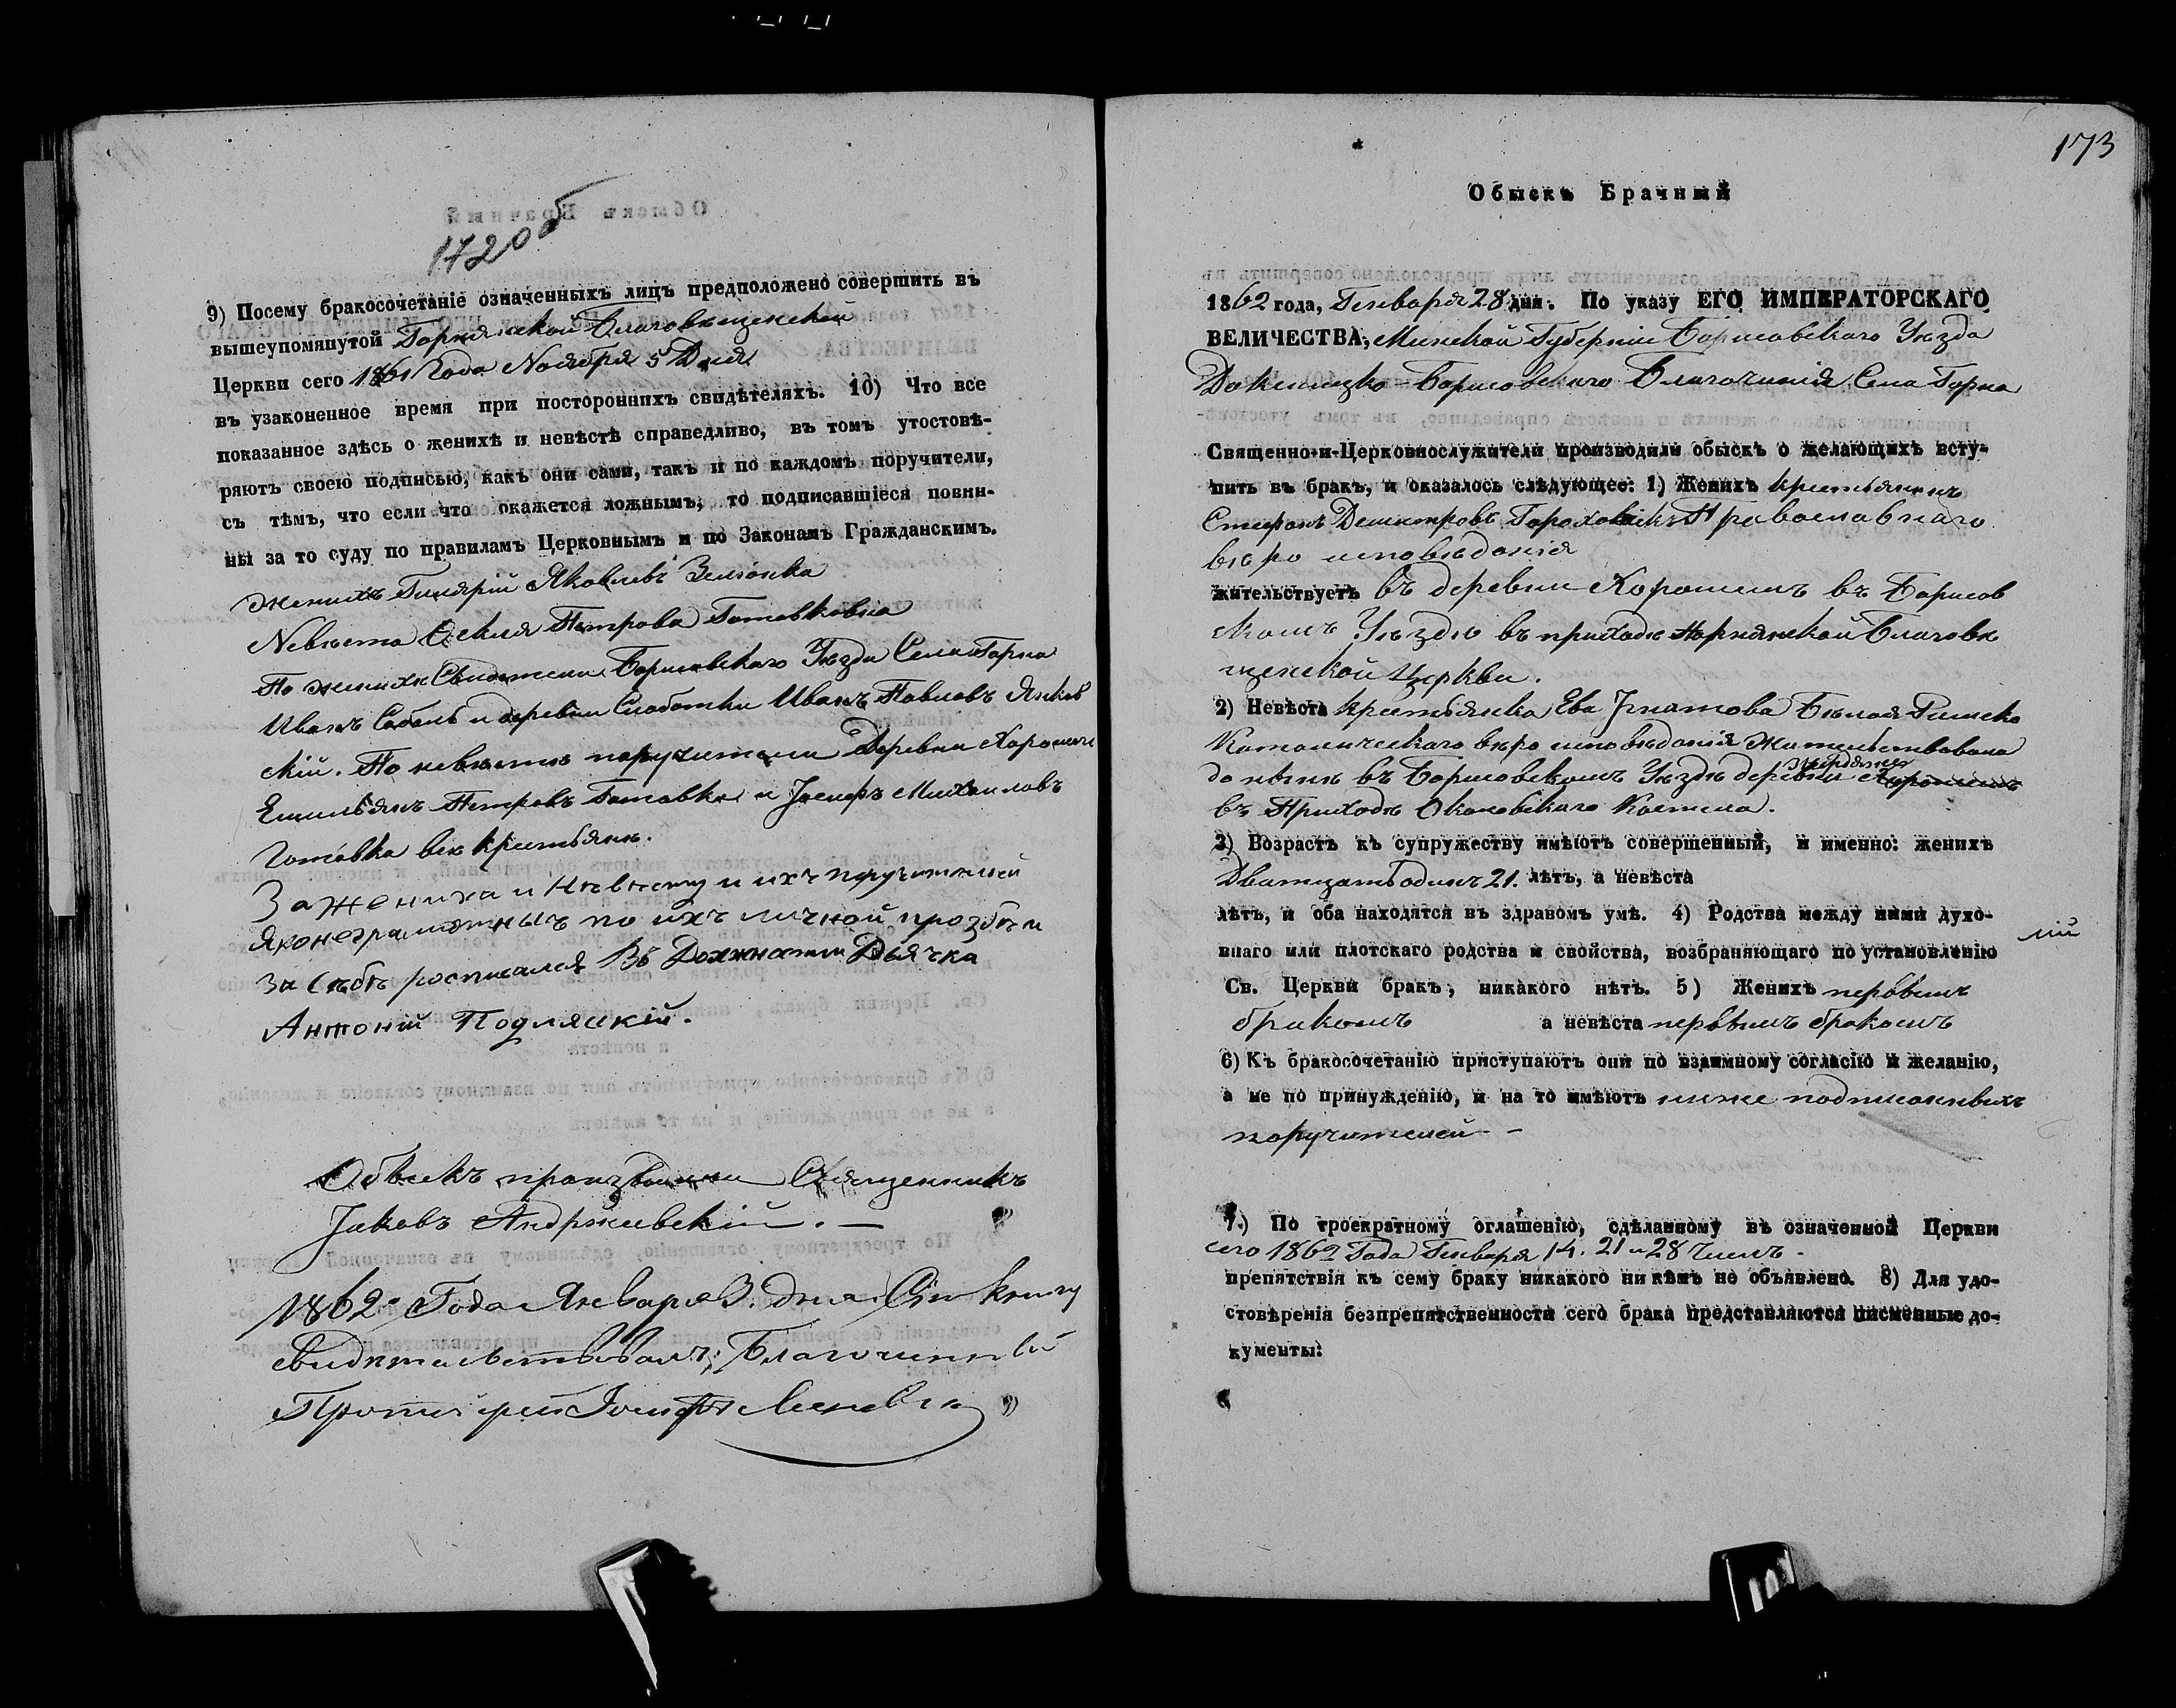 172 об
9) Посему бракосочетаніе означенныхъ лицъ предположено совершить въ
вышеупомянутой Горнянской Благовѣщенской
Церкви сего 1861 Года Ноября 5 Дня
въ узаконенное время при постороннихъ свидѣтеляхъ. 10) Что все
показанное здѣсь о женихѣ и невѣстѣ справедливо, въ томъ утостовѣ-
ряютъ своею подписью, какъ они сами, такъ и по каждомъ поручители,
съ тѣмъ, что если что окажется ложнымъ, то подписавшіеся повин-
ны за то суду по правиламъ Церковнымъ и по Законамъ Гражданскимъ.
женихъ Гилярій Яковлевъ Зеліонка
Невѣста Ѳекла Петрова Готовковна
По женихѣ Борисовскаго Уѣзда Села Горна
Иванъ и деревни Слободки Иванъ Павловъ
скій. По невѣстѣ поручители Деревни
Емильянъ Петровъ Готовка и Іосифъ Михайловъ
Готовка всѣ крестьяне.
За жениха и Невѣсту и ихъ поручителей
яко неграмотныхъ по ихъ личной прозбѣ и
за себѣ росписался Въ Должности Дьячка
Антоній Подляскій.
Обыскъ производили Священникъ
Іаковъ Андржиевскій. —
1862 Года Января 3. дня. Сію книгу
Свидѣтельствовалъ: Благочинный
Протоіерей Іосифъ
173
Обыскъ Брачный
1862 года, Генваря 28 дня. По указу ЕГО ИМПЕРАТОРСКАГО
ВЕЛИЧЕСТВА, Минской Губерніи Борисовскаго Уѣзда
Докшицко-Борисовскаго Благочинія Села Горна
Священно-и-Церковнослужители производили обыскъ о желающихъ всту-
пить въ бракъ, и оказалось слѣдующее: 1) Женихъ крестьянинъ
Стефанъ Деметровъ Православнаго
вѣро исповѣданія
жительствуетъ въ деревни въ Борисов
скомъ Уѣздѣ въ приходѣ Горнянской Благовѣ
щенской Церкви.
2) Невѣста крестьянка Ева Игнатова Бѣлая Римско
Католическаго вѣро исповѣданія жительствовала
до нынѣ въ Борисовскомъ Уѣздѣ деревни
въ Приходѣ Околовскаго Костела.
3) Возрастъ къ супружеству имѣютъ совершенный, и именно: женихъ
Дватцать одинъ 21. лѣтъ, а невѣста
лѣтъ, и оба находятся въ здравомъ умѣ. 4) Родства между ними духо-
внаго или плотскаго родства и свойства, возбраняющаго по установленію
Св. Церкви бракъ, никакого нѣтъ. 5) Женихъ первымъ
бракомъ а невѣста первымъ бракомъ
6) Къ бракосочетанію приступаютъ они по взаимному согласію и желанію,
а не по принужденію, и на то имѣютъ ниже подписанныхъ
поручителей —
7.) По троекратному оглашенію, сдѣланному въ означенной Церкви
сего 1862 Года Генваря 14. 21 и 28 Числъ.
препятствія къ сему браку никакого ни кѣмъ не объявлено. 8) Для удо-
стовѣренія безпрепятственности сего брака представляются писменные до-
кументы: